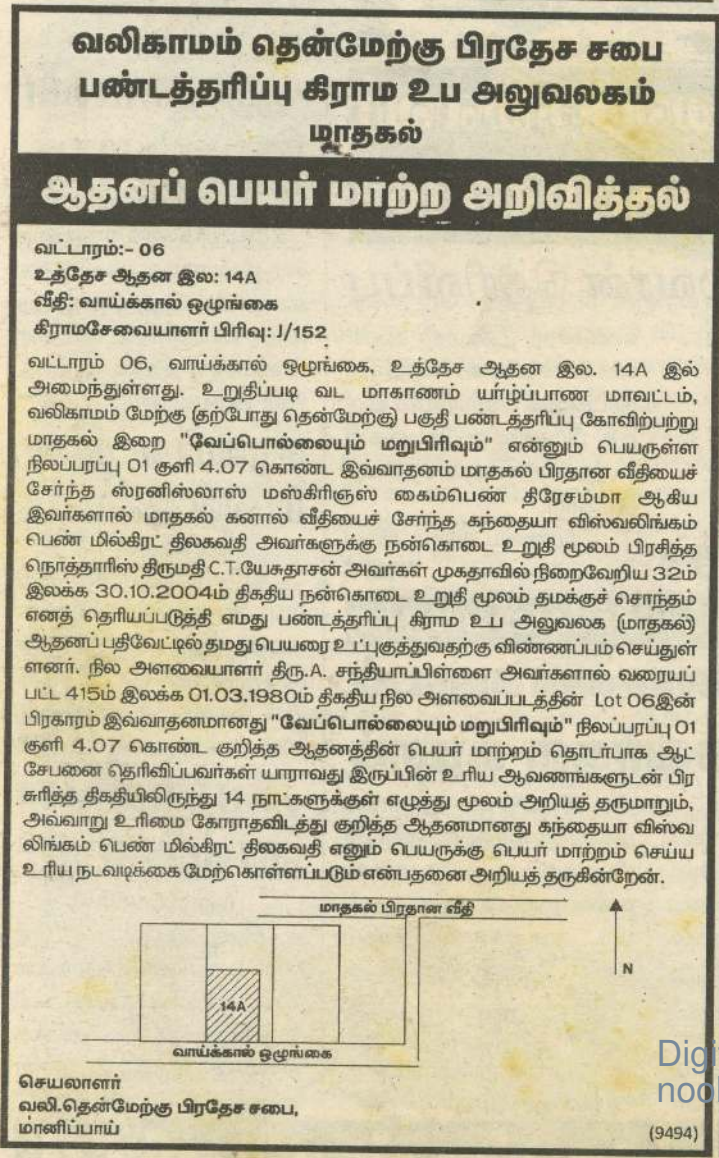 வலிகாமம் தென்மேற்கு பிரதேச சபை
பண்டத்தரிப்பு கிராம உப அலுவலகம்
மாதகல்
ஆதனப் பெயர் மாற்ற அறிவித்தல்
வட்டாரம்:- 06
உத்தேச ஆதன இல: 14A
வீதி: வாய்க்கால் ஒழுங்கை
கிராமசேவையாளர் பிரிவு: J/152
வட்டாரம் 06, வாய்க்கால் ஒழுங்கை, உத்தேச ஆதன இல. 14A இல்
அமைந்துள்ளது. உறுதிப்படி வட மாகாணம் யாழ்ப்பாண மாவட்டம்,
வலிகாமம் மேற்கு (தற்போது தென்மேற்கு) பகுதி பண்டத்தரிப்பு கோவிற்பற்று
மாதகல் இறை "வேப்பொல்லையும் மறுபிரிவும்" என்னும் பெயருள்ள
நிலப்பரப்பு 01 குளி 4.07 கொண்ட இவ்வாதனம் மாதகல் பிரதான வீதியைச்
சேர்ந்த ஸ்ரனிஸ்லாஸ் மஸ்கிரிஞஸ் கைம்பெண் திரேசம்மா ஆகிய
இவர்களால் மாதகல் கனால் வீதியைச் சேர்ந்த கந்தையா விஸ்வலிங்கம்
பெண் மில்கிரட் திலகவதி அவர்களுக்கு நன்கொடை உறுதி மூலம் பிரசித்த
நொத்தாரிஸ் திருமதி C.T.யேசுதாசன் அவர்கள் முகதாவில் நிறைவேறிய 32ம்
இலக்க 30.10.2004ம் திகதிய நன்கொடை உறுதி மூலம் தமக்குச் சொந்தம்
எனத் தெரியப்படுத்தி எமது பண்டத்தரிப்பு கிராம உப அலுவலக (மாதகல்)
ஆதனப் பதிவேட்டில் தமது பெயரை உட்புகுத்துவதற்கு விண்ணப்பம் செய்துள்
ளனர். நில அளவையாளர் திரு.A. சந்தியாப்பிள்ளை அவர்களால் வரையப்
பட்ட 415ம் இலக்க 01.03.1980ம் திகதிய நில அளவைப்படத்தின் Lot 06இன்
பிரகாரம் இவ்வாதனமானது "வேப்பொல்லையும் மறுபிரிவும்" நிலப்பரப்பு 01
குளி 4.07 கொண்ட குறித்த ஆதனத்தின் பெயர் மாற்றம் தொடர்பாக ஆட்
சேபனை தெரிவிப்பவர்கள் யாராவது இருப்பின் உரிய ஆவணங்களுடன் பிர
சுரித்த திகதியிலிருந்து 14 நாட்களுக்குள் எழுத்து மூலம் அறியத் தருமாறும்,
அவ்வாறு உரிமை கோராதவிடத்து குறித்த ஆதனமானது கந்தையா விஸ்வ
லிங்கம் பெண் மில்கிரட் திலகவதி எனும் பெயருக்கு பெயர் மாற்றம் செய்ய
உரிய நடவடிக்கை மேற்கொள்ளப்படும் என்பதனை அறியத் தருகின்றேன்.
மாதகல் பிரதான வீதி
N
14A
வாய்க்கால் ஒழுங்கை
செயலாளர்
வலி.தென்மேற்கு பிரதேச சபை,
மானிப்பாய்
(9494)